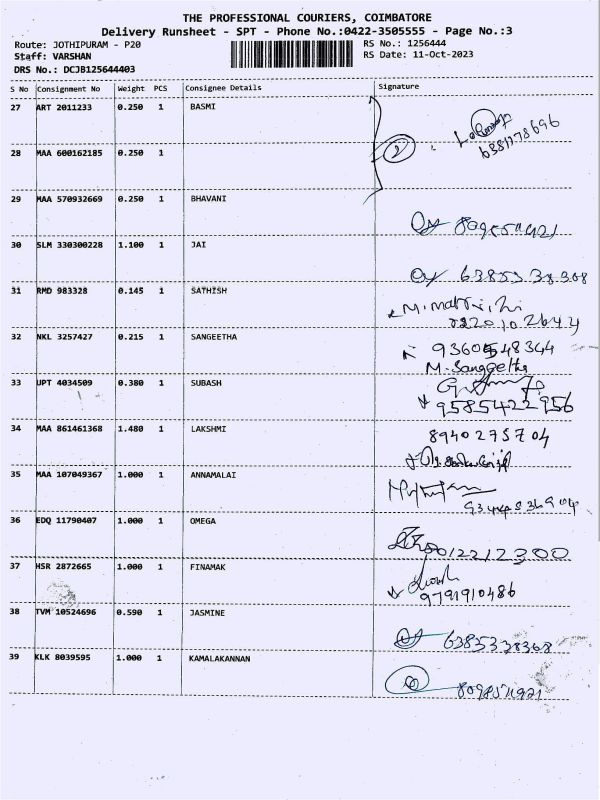 THE PROFESSIONAL COURIERS, COIMBATORE
Delivery Runsheet - SPT - Phone No.:0422-3505555 - Page No.:3
Route: JOTHIPURAM - P20 RS No.: 1256444
Staff: VARSHAN RS Date: 11-Oct-2023
DRS No.: DCJB125644403
S No Consignment No Weight PCS Consignee Details Signature
27 ART 2011233 0.250 1 BASMI
6381178696
28 MAA 600162185 0.250 1 2
29 MAA 570932669 0.250 1 BHAVANI
30 SLM 330300228 1.100 1 JAI
6385338308
31 RMD 983328 0.145 1 SATHISH
32 NKL 3257427 0.215 1 SANGEETHA
9360548344
M. Sangeetha
33 UPT 4034509 0.380 1 SUBASH
9585422956
34 MAA 861461368 1.480 1 LAKSHMI 8940275704
35 MAA 107049367 1.000 1 ANNAMALAI
36 EDQ 11790407 1.000 1 OMEGA
37 HSR 2872665 1.000 1 FINAMAK
9791910486
38 TVM 10524696 0.590 1 JASMINE
6385338368
39 KLK 8039595 1.000 1 KAMALAKANNAN